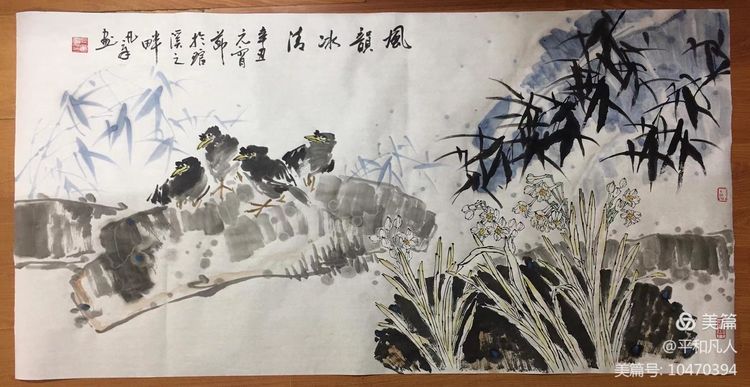 風韻冰清
辛丑
元宵
節
於琯
溪之
畔
画
美篇
@平和凡人
美篇号: 10470394